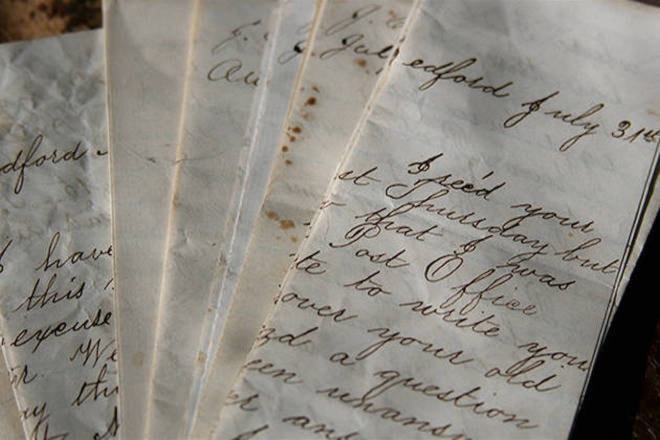 dford
I have
this
excuse
r. We
ay th
J.
Au
J. 
Jul
edford July 31st
I rec'd your
st Thursday but
that I was
Post Office
te to write you
over your old
nd a question
een unans
er an